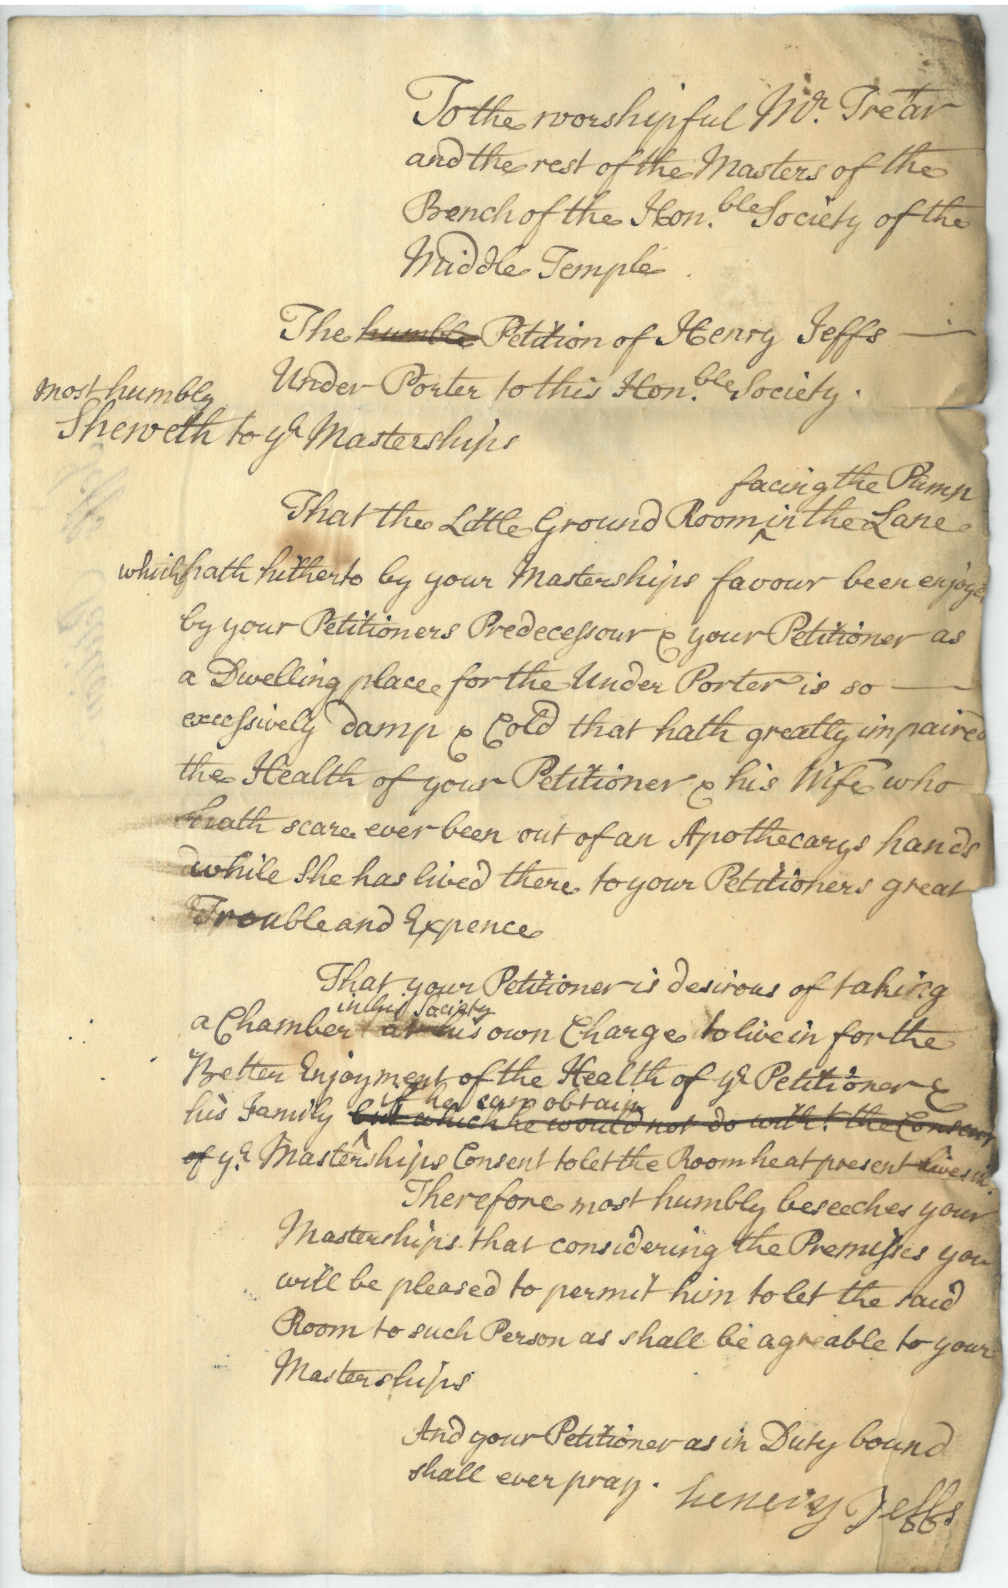 To the worshipful Mr. Trear
and the rest of the Masters of the
Bench of the Hon.ble Society of the
Middle Temple
The humble Petition of Henry Jeffs
Under Porter to this Hon.ble Society.
most humbly
Sheweth to yr Masterships
facing the Pump
That the Little Ground Room ^ in the Lane
which hath hitherto by your Masterships favour been enjoyed
by your Petitioners Predecessour & your Petitioner as
a Dwelling place for the Under Porter is so
excessively damp & Cold that hath greatly impaired
the Health of your Petitioner & his Wife who
hath scarce ever been out of an Apothecarys hands
while She has lived there to your Petitioners great
Trouble and Expence
That your Petitioner is desirous of taking
in his Society
a Chamber at his own Charge to live in for the
Better Enjoyment of the Health of yr Petitioner &
if he can obtain
his Family but which he would not do witht the Consent
of yr Masterships Consent to let the Room he at present lives in
Therefore most humbly beseeches your
Masterships that considering the Premisses you
will be pleased to permit him to let the said
Room to such Person as shall be agreable to your
Masterships
And your Petitioner as in Duty bound
shall ever pray.
henery Jeffs